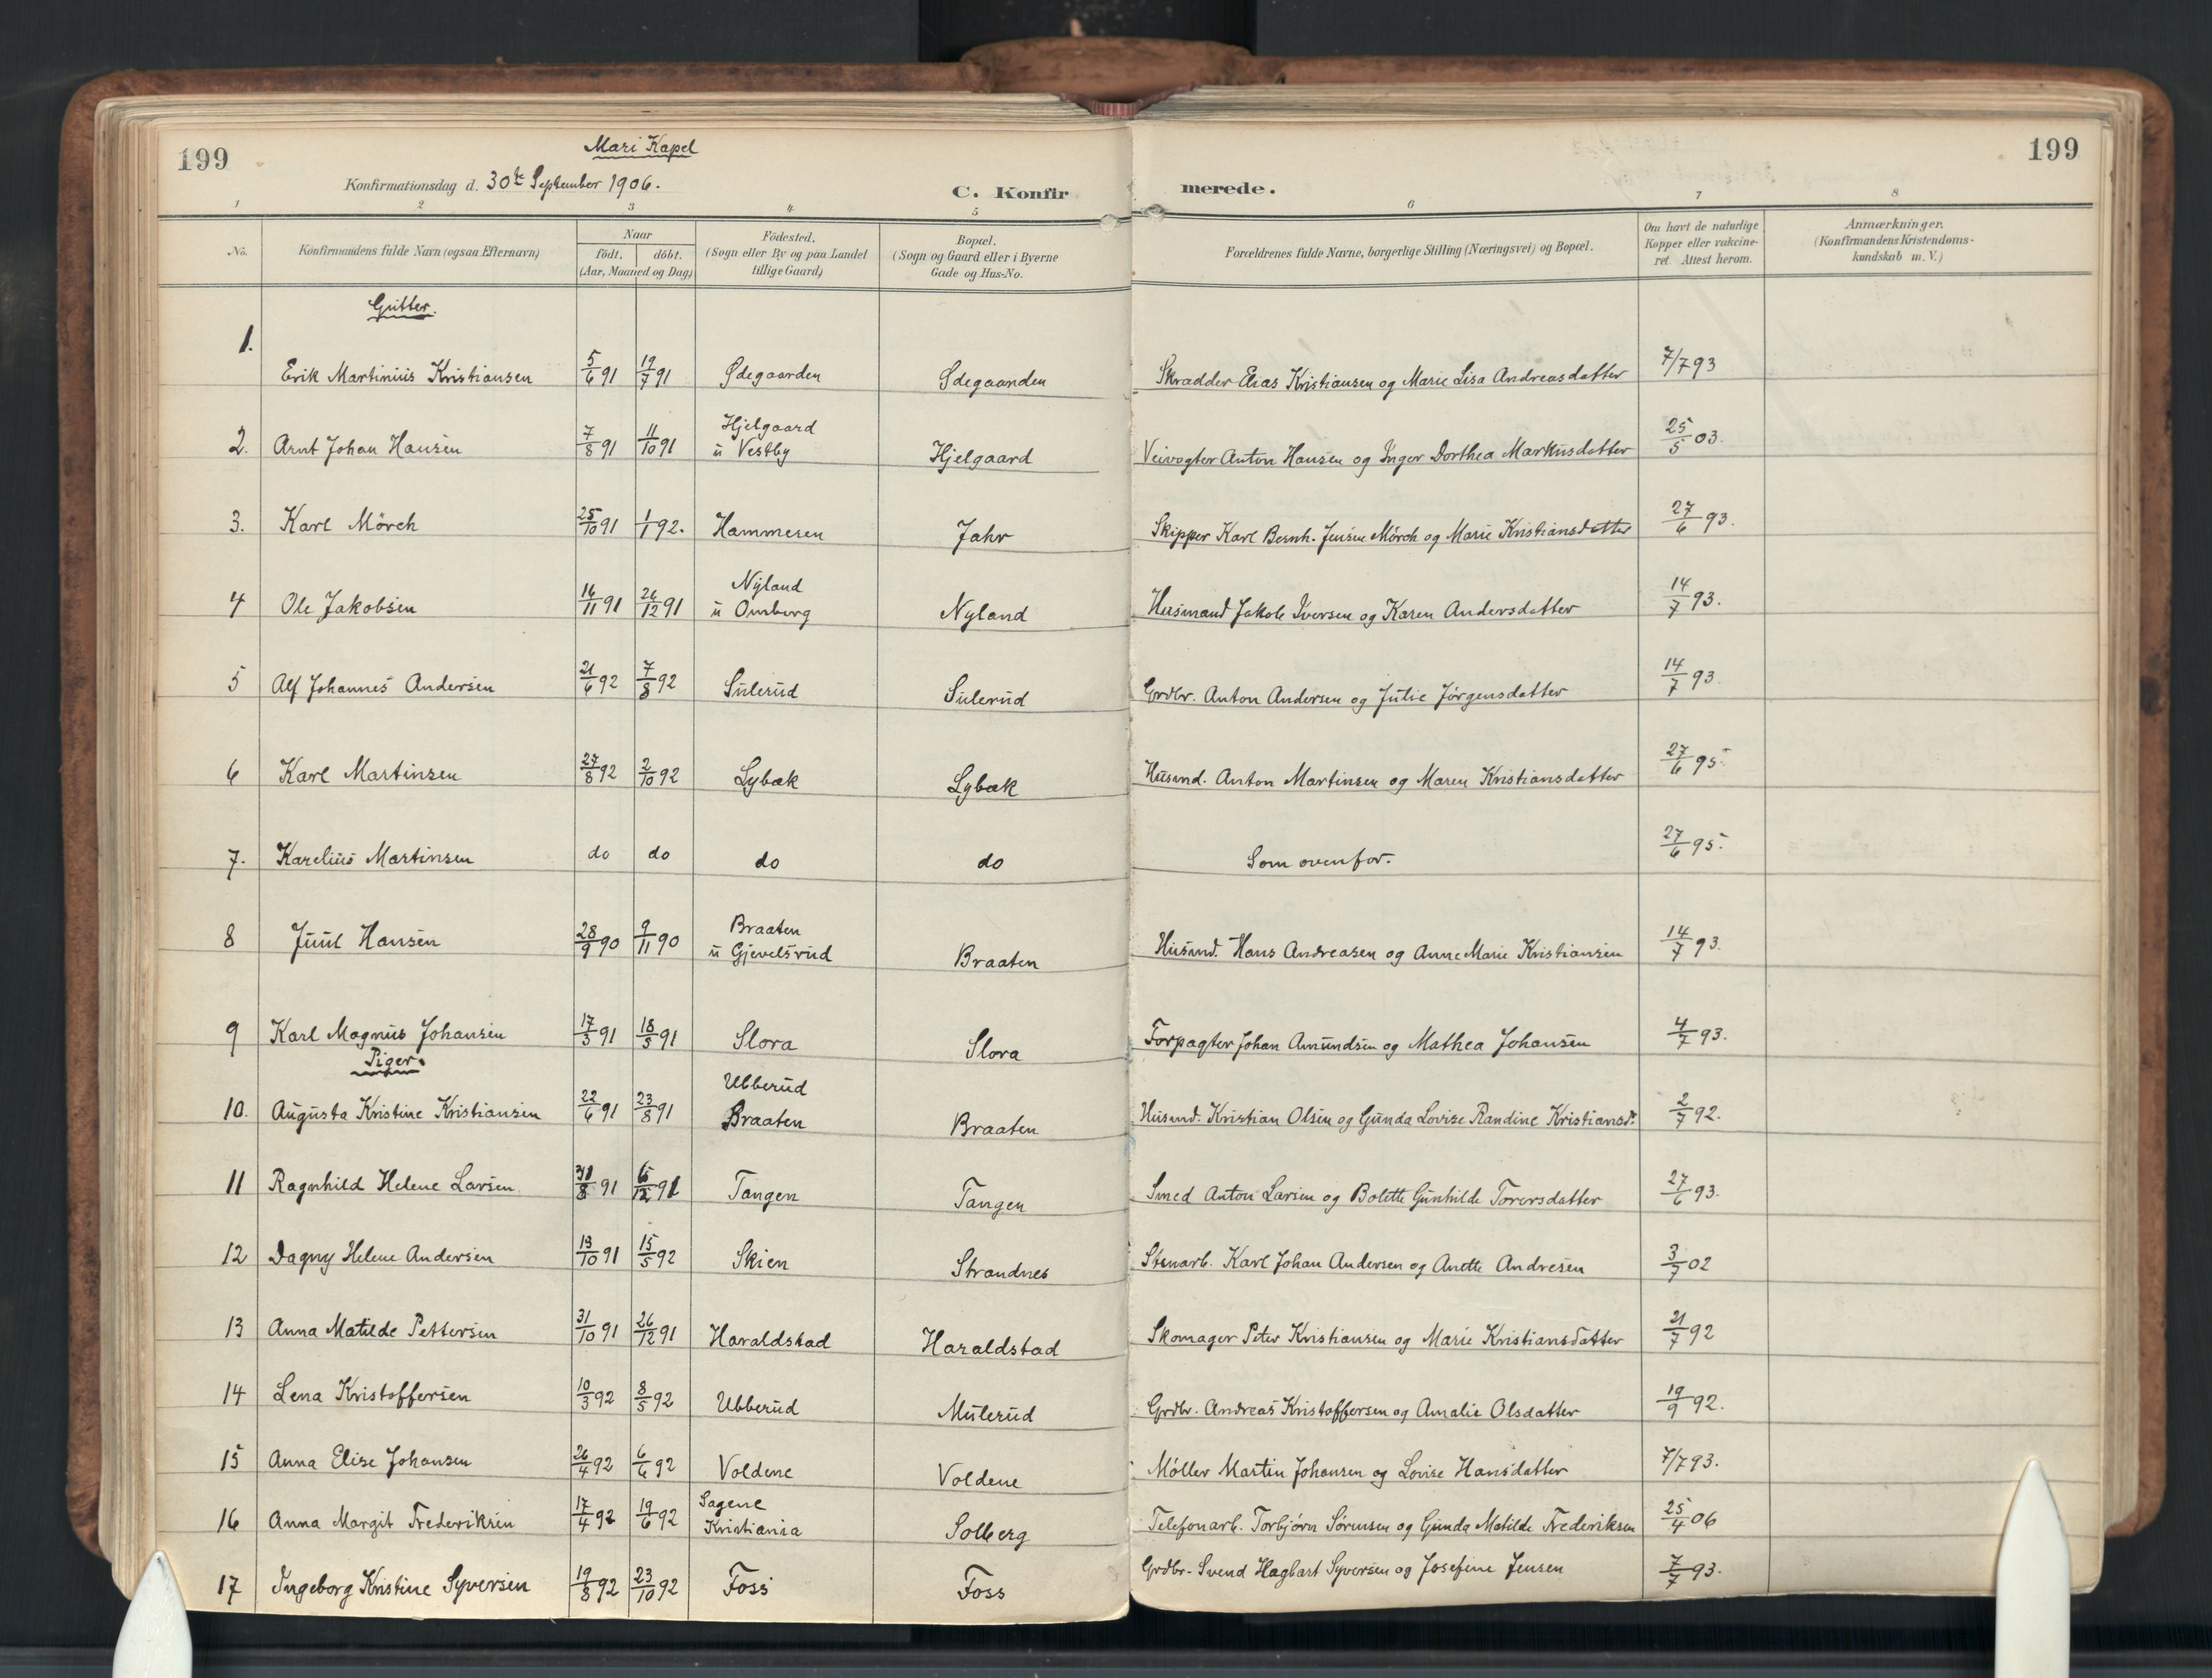 199
Mari Kapel
Konfirmationsdag d. 30te September 1906.
C. Konfirmerede.
199
1 2 3 4 5 6 7 8
No. Konfirmandens fulde Navn (ogsaa Efternavn) Naar født. døbt. (Aar, Maaned og Dag) Fødested. (Sogn eller By og paa Landet tillige Gaard) Bopæl. (Sogn og Gaard eller i Byerne Gade og Hus-No. Forældrenes fulde Navne, borgerlige Stilling (Næringsvei) og Bopæl. Om havt de naturlige Kopper eller vakcineret. Attest herom. Anmærkninger. (Konfirmandens Kristendomskundskab m. V.)
Gutter.
1. Erik Martinius Kristiansen 5/6 91 19/7 91 Ødegaarden Ødegaarden Skrædder Elias Kristiansen og Marie Lisa Andreasdatter 7/7 93
2. Arnt Johan Hansen 7/8 91 11/10 91 Hjelgaard u Vestby Hjelgaard Veivogter Anton Hansen og Inger Dorthea Markusdatter 25/5 03.
3. Karl Mørch 25/10 91 1/1 92. Hammeren Jahr Skipper Karl Bernh. Jensen Mørch og Marie Kristiansdatter 27/6 93.
4 Ole Jakobsen 16/11 91 26/12 91 Nyland u Omberg Nyland Husmand Jakob Iversen og Karen Andersdatter 14/7 93.
5 Alf Johannes Andersen 21/6 92 7/8 92 Sulerud Sulerud Grdbr. Anton Andersen og Julie Jørgensdatter 14/7 93
6 Karl Martinsen 27/8 92 2/10 92 Lybæk Lybæk Husmd. Anton Martinsen og Maren Kristiansdatter 27/6 95.
7. Karelius Martinsen do do do do Som ovenfor. 27/6 95.
8 Juul Hansen 28/9 90 9/11 90 Braaten u Gjevelsrud Braaten Husmd. Hans Andreasen og Anne Marie Kristiansen 14/7 93.
9 Karl Magnus Johansen 17/3 91 18/5 91 Slora Slora Forpagter Johan Amundsen og Mathea Johansen 4/7 93.
Piger.
10. Augusta Kristine Kristiansen 22/6 91 23/8 91 Ubberud Braaten Braaten Husmd. Kristian Olsen og Gunda Lovise Randine Kristiansd. 2/7 92.
11 Ragnhild Helene Larsen. 31/8 91 6/12 91 Tangen Tangen Smed Anton Larsen og Bolette Gunhilde Torersdatter 27/6 93.
12 Dagny Helene Andersen 13/10 91 15/5 92 Skien Strandnes Stenarb. Karl Johan Andersen og Anette Andresen 3/7 02
13 Anna Matilde Pettersen 31/10 91 26/12 91 Haraldstad Haraldstad Skomager Peter Kristiansen og Marie Kristiansdatter 21/7 92
14 Lena Kristoffersen 10/3 92 8/5 92 Ubberud Mulerud Grdbr. Andreas Kristoffersen og Amalie Olsdatter 19/9 92.
15 Anna Elise Johansen 26/4 92 6/6 92 Voldene Voldene Møller Martin Johansen og Lovise Hansdatter 7/7 93.
16 Anna Margit Frederiksen 17/4 92 19/6 92 Sagene Kristiania Solberg Telefonarb. Torbjørn Sørensen og Gunda Matilde Frederiksen 25/4 06
17 Ingeborg Kristine Syversen 19/8 92 23/10 92 Foss Foss Grdbr. Svend Hagbart Syversen og Josefine Jensen 7/7 93.